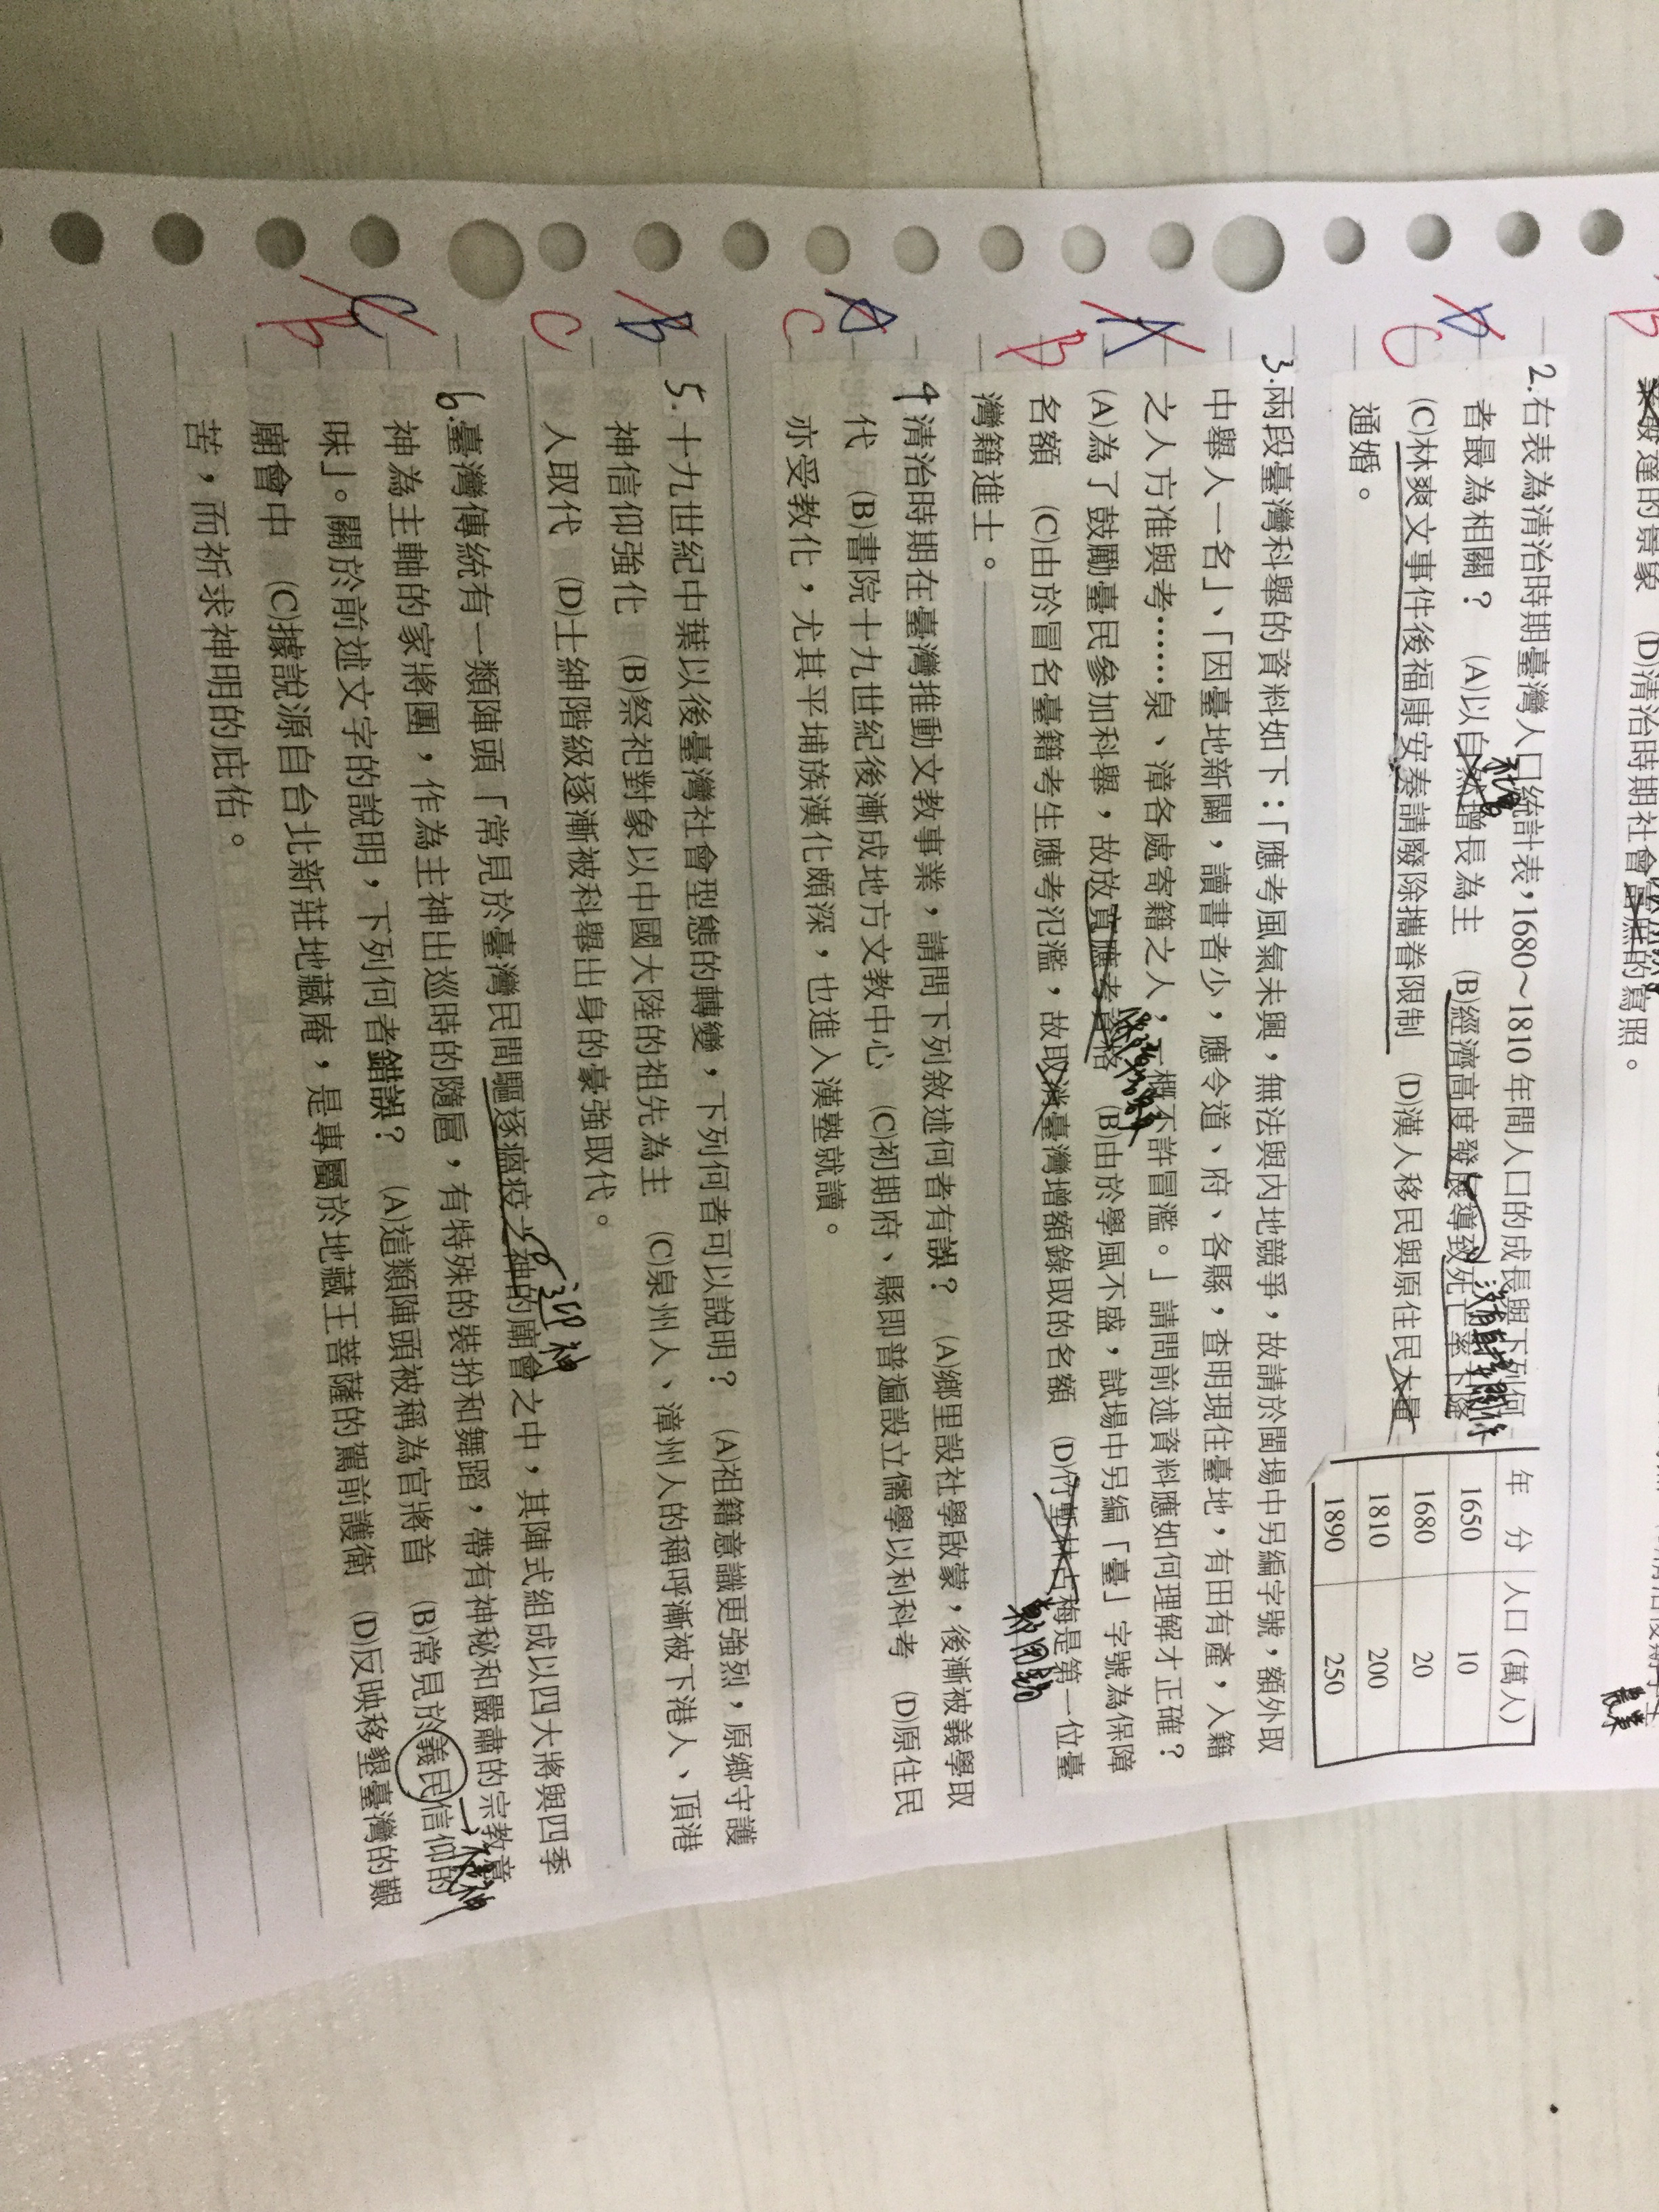 業發達的景象 (D)清治時期社會 的寫照。
B
2.右表為清治時期臺灣人口統計表，1680～1810年間人口的成長與下列何
者最為相關？ (A)以自然增長為主 (B)經濟高度發展導致死亡率下降
(C)林爽文事件後福康安奏請廢除攜眷限制 (D)漢人移民與原住民大量
通婚。
C
年 分 人口（萬人）
1650 10
1680 20
1810 200
1890 250
3.兩段臺灣科舉的資料如下：「應考風氣未興，無法與內地競爭，故請於閩場中另編字號，額外取
中舉人一名」、「因臺地新闢，讀書者少，應令道、府、各縣，查明現住臺地，有田有產，入籍
之人方准與考……泉、漳各處寄籍之人，一概不許冒濫。」請問前述資料應如何理解才正確？
(A)為了鼓勵臺民參加科舉，故放寬應考資格 (B)由於學風不盛，試場中另編「臺」字號為保障
名額 (C)由於冒名臺籍考生應考氾濫，故取消臺灣增額錄取的名額 (D)竹塹林占梅是第一位臺
灣籍進士。
A
B
4清治時期在臺灣推動文教事業，請問下列敘述何者有誤？ (A)鄉里設社學啟蒙，後漸被義學取
代 (B)書院十九世紀後漸成地方文教中心 (C)初期府、縣即普遍設立儒學以利科考 (D)原住民
亦受教化，尤其平埔族漢化頗深，也進入漢塾就讀。
A
C
5.十九世紀中葉以後臺灣社會型態的轉變，下列何者可以說明？ (A)祖籍意識更強烈，原鄉守護
神信仰強化 (B)祭祀對象以中國大陸的祖先為主 (C)泉州人、漳州人的稱呼漸被下港人、頂港
人取代 (D)士紳階級逐漸被科舉出身的豪強取代。
B
C
6.臺灣傳統有一類陣頭「常見於臺灣民間驅逐瘟疫之神的廟會之中，其陣式組成以四大將與四季
迎神
神為主軸的家將團，作為主神出巡時的隨扈，有特殊的裝扮和舞蹈，帶有神秘和嚴肅的宗教意
味」。關於前述文字的說明，下列何者錯誤？ (A)這類陣頭被稱為官將首 (B)常見於義民信仰的
廟會中 (C)據說源自台北新莊地藏庵，是專屬於地藏王菩薩的駕前護衛 (D)反映移墾臺灣的艱
苦，而祈求神明的庇佑。
C
B